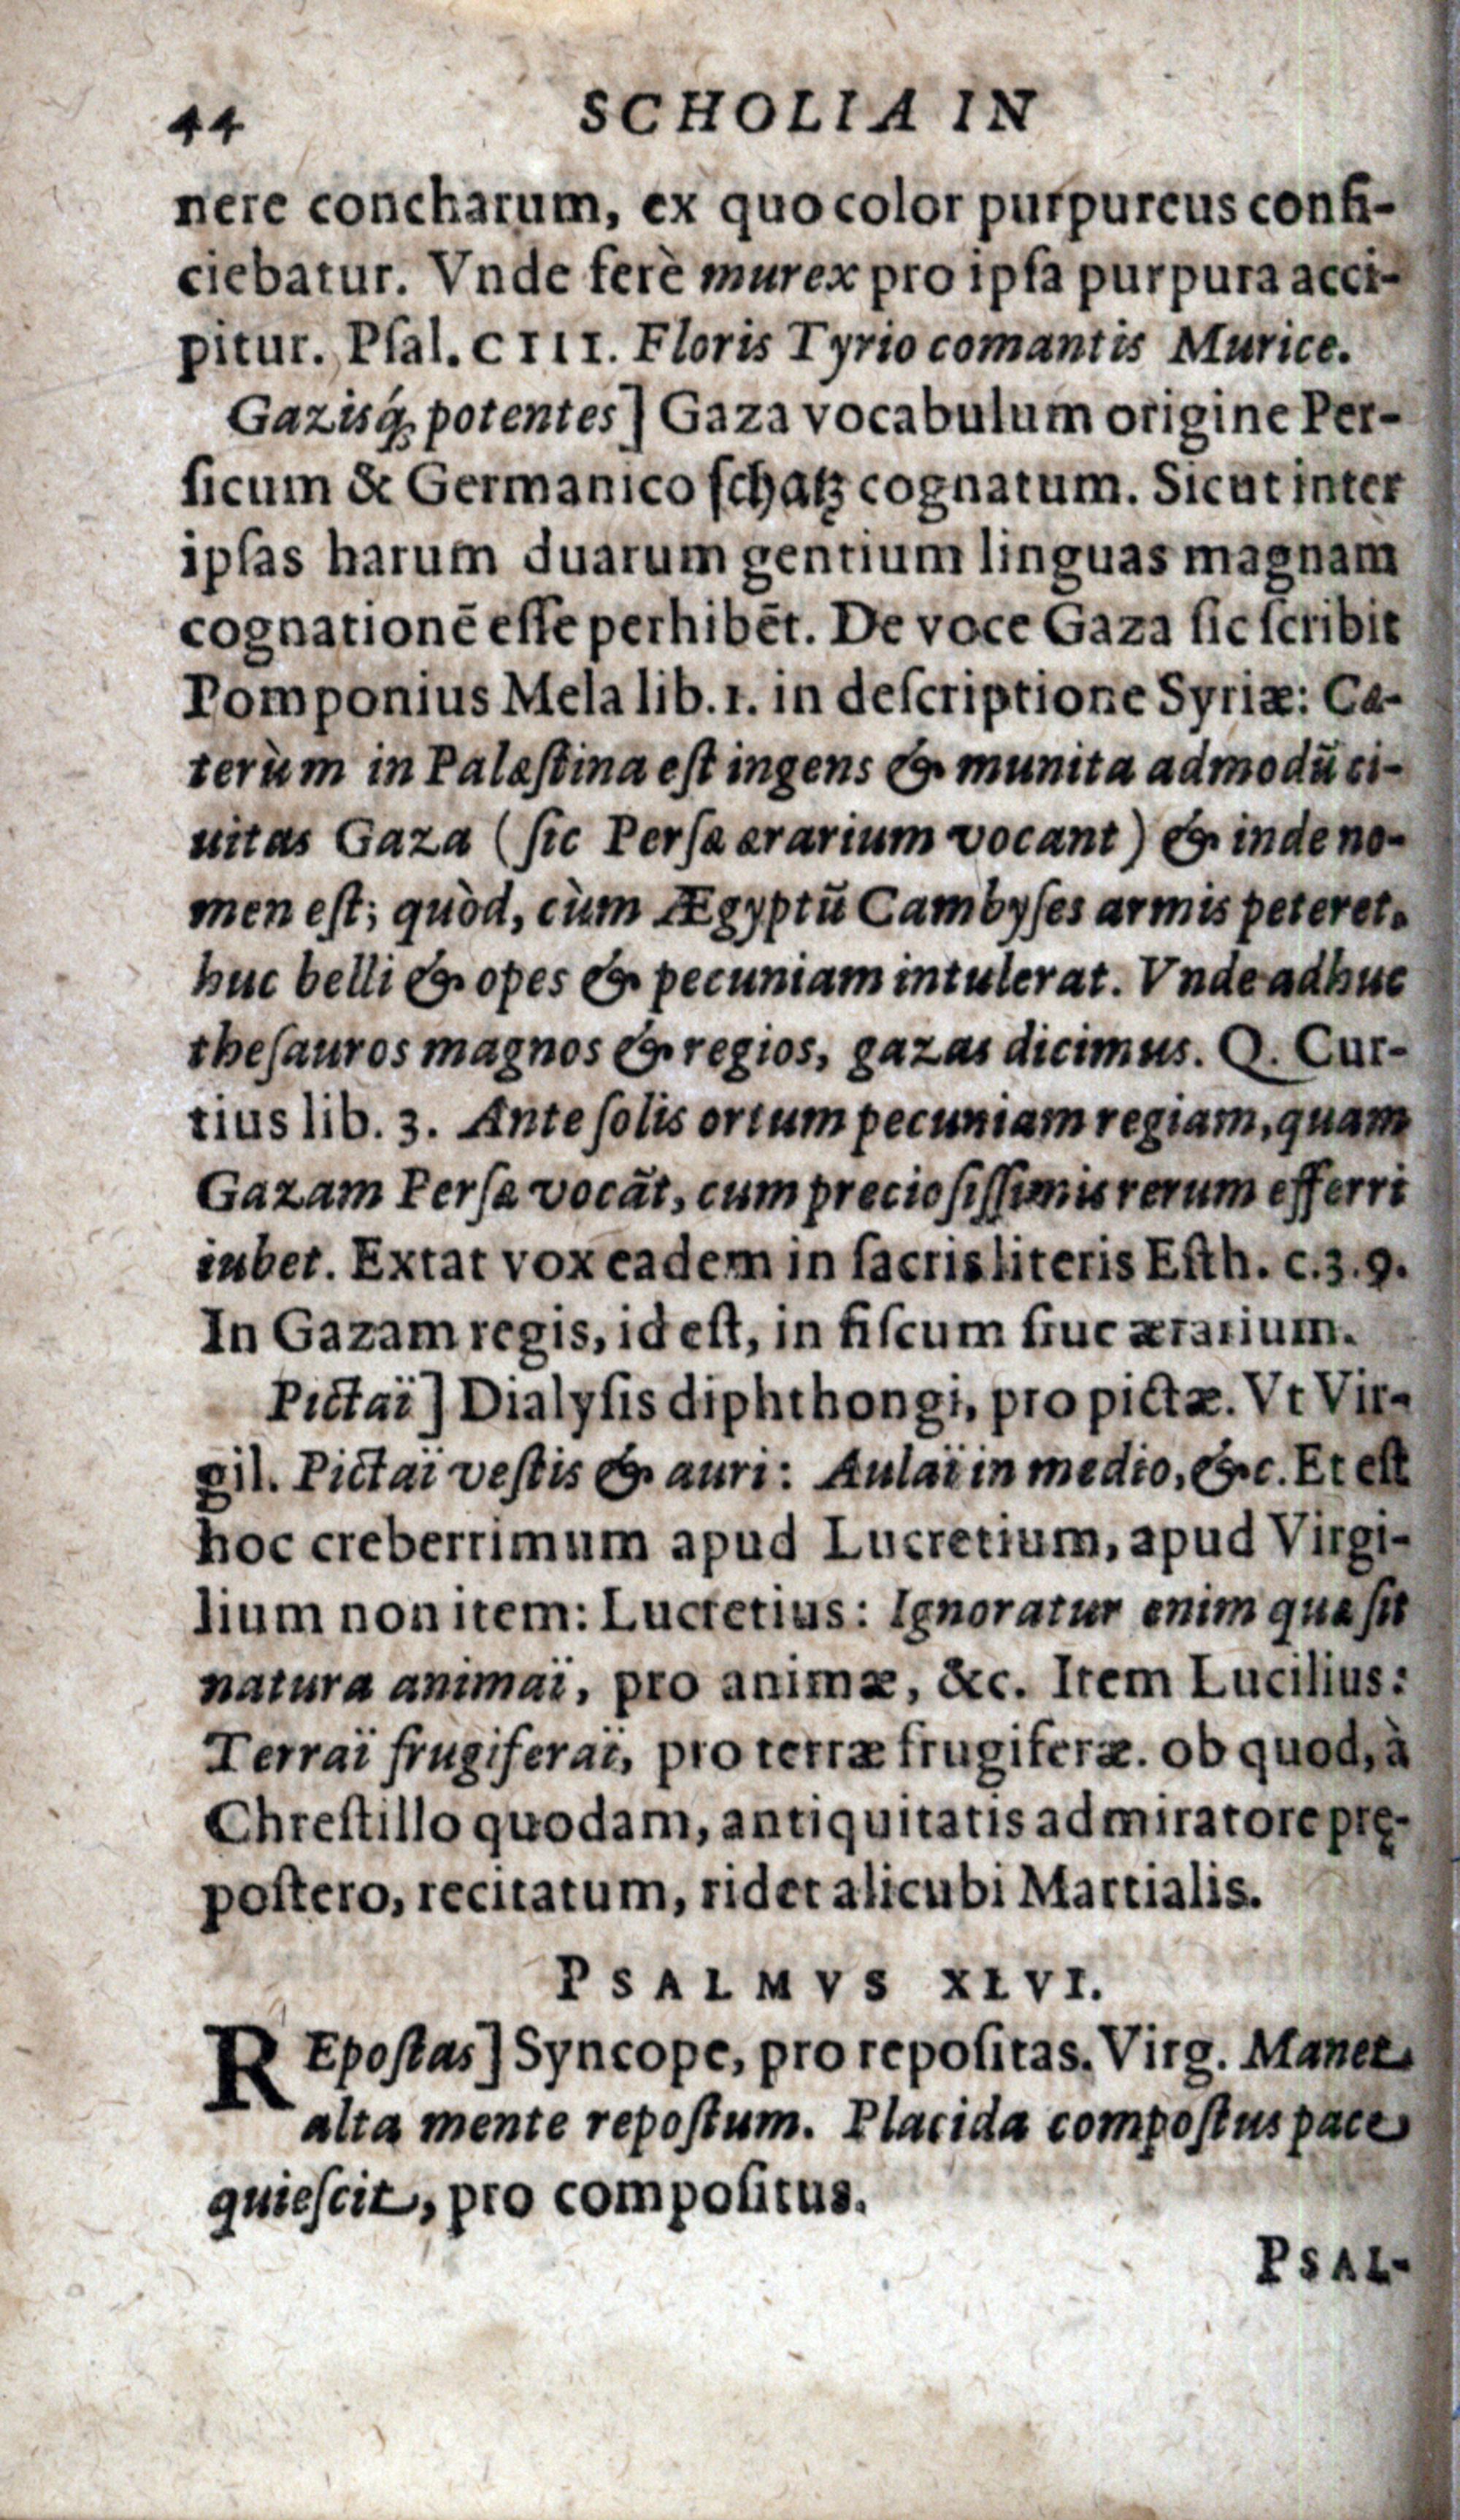 44 SCHOLIA IN
nere concharum, ex quo color purpureus confi-
ciebatur. Vnde ferè murex pro ipſa purpura acci-
pitur. Pſal. CIII. Floris Tyrio comantis Murice.
Gazisq́; potentes] Gaza vocabulum origine Per-
ſicum & Germanico ſchatz cognatum. Sicut inter
ipſas harum duarum gentium linguas magnam
cognationē eſſe perhibēt. De voce Gaza ſic ſcribit
Pomponius Mela lib. 1. in deſcriptione Syriæ: Ca-
terùm in Palæſtina eſt ingens & munita admodū ci-
uitas Gaza (ſic Perſæ ærarium vocant) & inde no-
men eſt; quòd, cùm Ægyptū Cambyſes armis peteret,
huc belli & opes & pecuniam intulerat. Vnde adhuc
theſauros magnos & regios, gazas dicimus. Q. Cur-
tius lib. 3. Ante ſolis ortum pecuniam regiam, quam
Gazam Perſæ vocāt, cum precioſiſſimis rerum efferri
iubet. Extat vox eadem in ſacris literis Eſth. c. 3. 9.
In Gazam regis, id eſt, in fiſcum ſiue ærarium.
Pictaï] Dialyſis diphthongi, pro pictæ. Vt Vir-
gil. Pictaï veſtis & auri: Aulaï in medio, &c. Et eſt
hoc creberrimum apud Lucretium, apud Virgi-
lium non item: Lucretius: Ignoratur enim quæ ſit
natura animaï, pro animæ, &c. Item Lucilius:
Terraï frugiferaï, pro terræ frugiferæ. ob quod, à
Chreſtillo quodam, antiquitatis admiratore prę-
poſtero, recitatum, ridet alicubi Martialis.
PSALMVS XLVI.
REpoſtas] Syncope, pro repoſitas. Virg. Manet
alta mente repoſtum. Placida compoſtus pace
quieſcit, pro compoſitus.
PSAL-